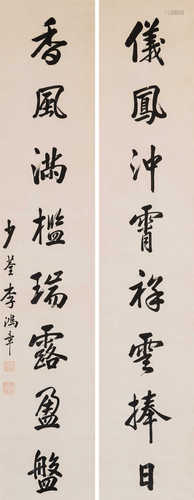 儀鳳沖霄祥雲捧日
香風滿檻瑞露盈盤
少荃李鴻章